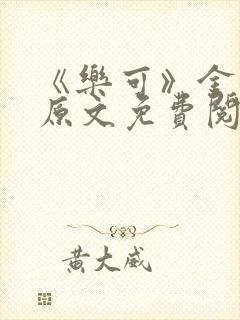 《樂可》全
原文免費閱
黃大威